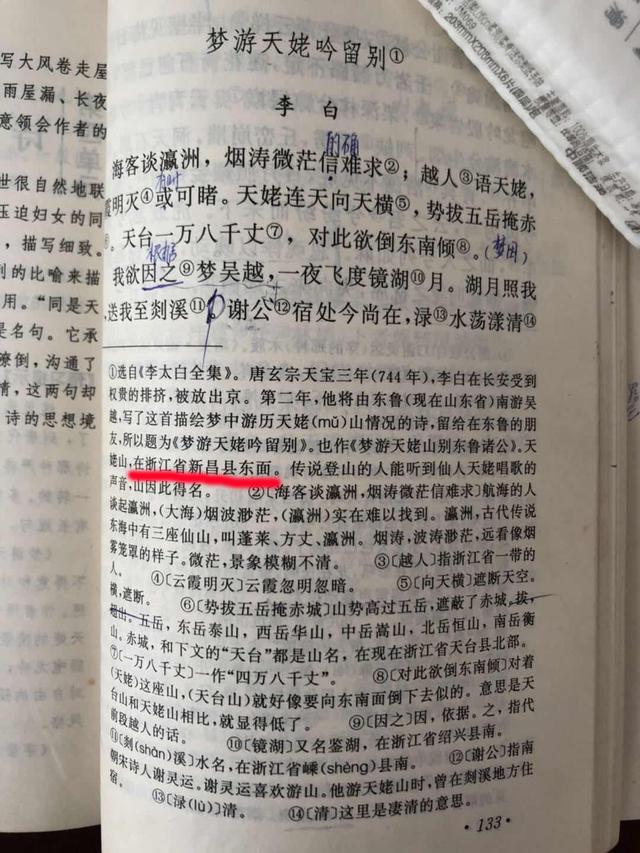 写大风卷走屋
雨屋漏、长夜
意领会作者的
世很自然地联
压迫妇女的同
，描写细致。
列的比喻来描
用。“同是天
是名句。它承
潦倒，沟通了
情，这两句却
诗的思想境
梦游天姥吟留别①
李白
的确
海客谈瀛洲，烟涛微茫信难求②；越人③语天姥，
有时
霞明灭④或可睹。天姥连天向天横⑤，势拔五岳掩赤
。天台一万八千丈⑦，对此欲倒东南倾⑧。（梦因）
根据
我欲因之⑨梦吴越，一夜飞度镜湖⑩月。湖月照我
送我至剡溪⑪。谢公⑫宿处今尚在，渌⑬水荡漾清⑭
①选自《李太白全集》。唐玄宗天宝三年(744年)，李白在长安受到
权贵的排挤，被放出京。第二年，他将由东鲁(现在山东省)南游吴
越，写了这首描绘梦中游历天姥(mǔ)山情况的诗，留给在东鲁的朋
友，所以题为《梦游天姥吟留别》。也作《梦游天姥山别东鲁诸公》。天
姥山，在浙江省新昌县东面。传说登山的人能听到仙人天姥唱歌的
声音，山因此得名。 ②〔海客谈瀛洲，烟涛微茫信难求〕航海的人
谈起瀛洲，(大海)烟波渺茫，(瀛洲)实在难以找到。瀛洲，古代传说
东海中有三座仙山，叫蓬莱、方丈、瀛洲。烟涛，波涛渺茫，远看像烟
雾笼罩的样子。微茫，景象模糊不清。 ③〔越人〕指浙江省一带的
人。 ④〔云霞明灭〕云霞忽明忽暗。 ⑤〔向天横〕遮断天空。
横，遮断。 ⑥〔势拔五岳掩赤城〕山势高过五岳，遮蔽了赤城，拔，
超出。五岳，东岳泰山，西岳华山，中岳嵩山，北岳恒山，南岳衡
山。赤城，和下文的“天台”都是山名，在现在浙江省天台县北部。
⑦〔一万八千丈〕一作“四万八千丈”。 ⑧〔对此欲倒东南倾〕对着
(天姥)这座山，(天台山)就好像要向东南面倒下去似的。意思是天
台山和天姥山相比，就显得低了。 ⑨〔因之〕因，依据。之，指代
前段越人的话。 ⑩〔镜湖〕又名鉴湖，在浙江省绍兴县南。
⑪〔剡(shàn)溪〕水名，在浙江省嵊(shèng)县南。 ⑫〔谢公〕指南
朝宋诗人谢灵运。谢灵运喜欢游山。他游天姥山时，曾在剡溪地方住
宿。 ⑬〔渌(lù)〕清。 ⑭〔清〕这里是凄清的意思。
·133·